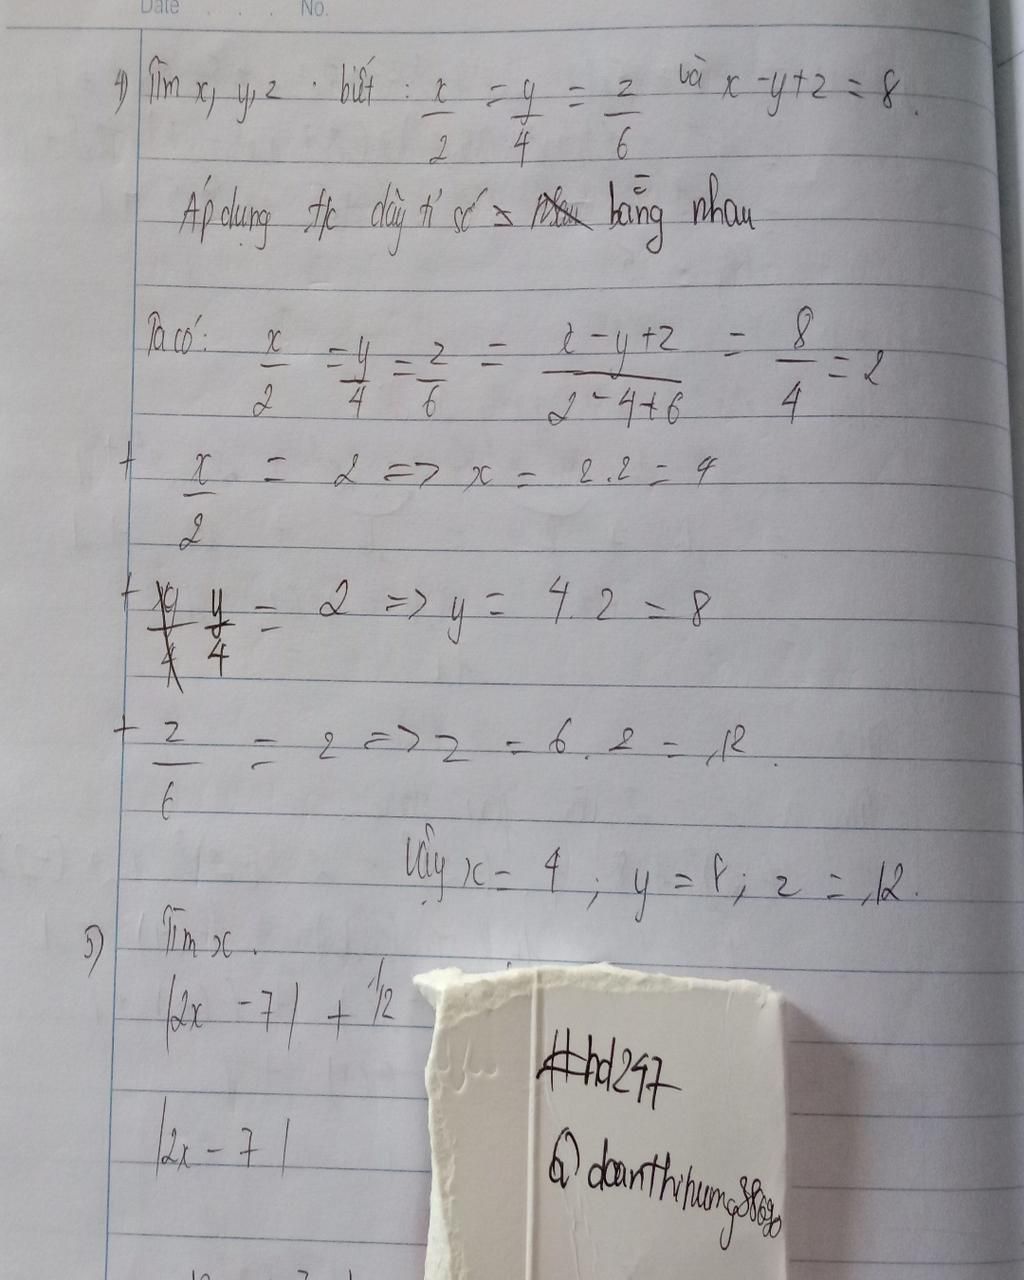 Date . . . . No.
4) Tìm x, y, z . biết : x/2 = y/4 = z/6 và x - y + z = 8.
Áp dụng t/c dãy tỉ số bằng nhau
Ta có: x/2 = y/4 = z/6 = x - y + z / 2 - 4 + 6 = 8/4 = 2
+ x/2 = 2 => x = 2.2 = 4
+ y/4 = 2 => y = 4.2 = 8
+ z/6 = 2 => z = 6.2 = 12.
Vậy x = 4 ; y = 8 ; z = 12.
5) Tìm x.
|2x - 7| + 1/2
|2x - 7|
#hd247
@doanthihumg88690